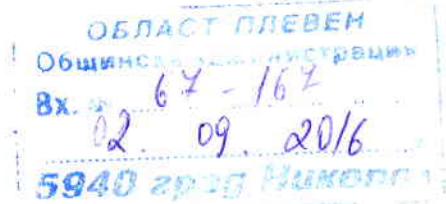 ОБЛАСТ ПЛЕВЕН
Общинска администрация
Вх. № 67-167
02. 09. 2016
5940 град Никопол